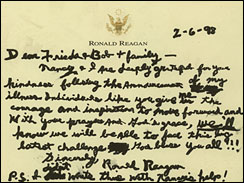 2-6-98
RONALD REAGAN
Dear Frieda & Bob & family—
Nancy & I are deeply grateful for your
kindness following the announcement of my
illness. Individuals like you give us the
courage and inspiration to move forward and
with your prayers and God's grace, we
know we will be able to face this
latest challenge. God bless you all!!
Sincerely,
Ronald Reagan
P.S. I write this with Nancy's help!